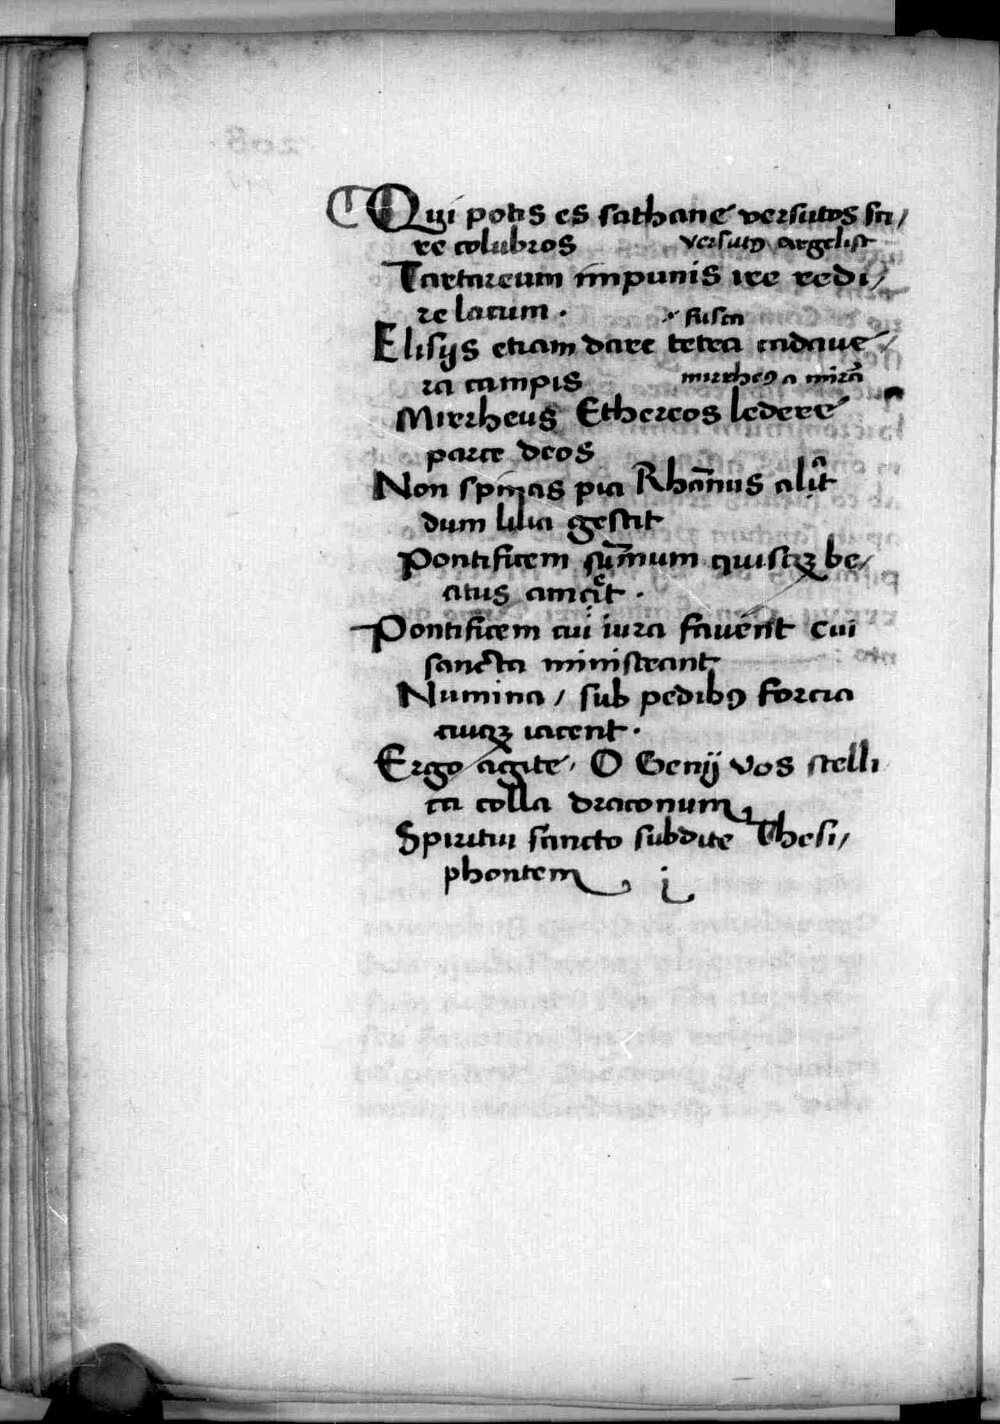 Qui potis es sathane versutos sci/
re colubros versutꝰ
Tartareum impunis ire redi/
re lacum . fusca
Elisijs etiam dare tetra cadaue/
ra campis mirrheꝰ a mira
Mirrheus Ethereos ledere
parce deos
Non spinas pia Rhānus alit
dum lilia gestit
Pontificem sūmum quisqꝫ be/
atus amet .
Pontificem cui iura favent cui
sancta ministrant
Numina / sub pedibꝰ forcia
cuiqꝫ iacent .
Ergo agite , O Genij vos stelli
ta colla draconum
Spiritui sancto subdite Thesi/
phontem